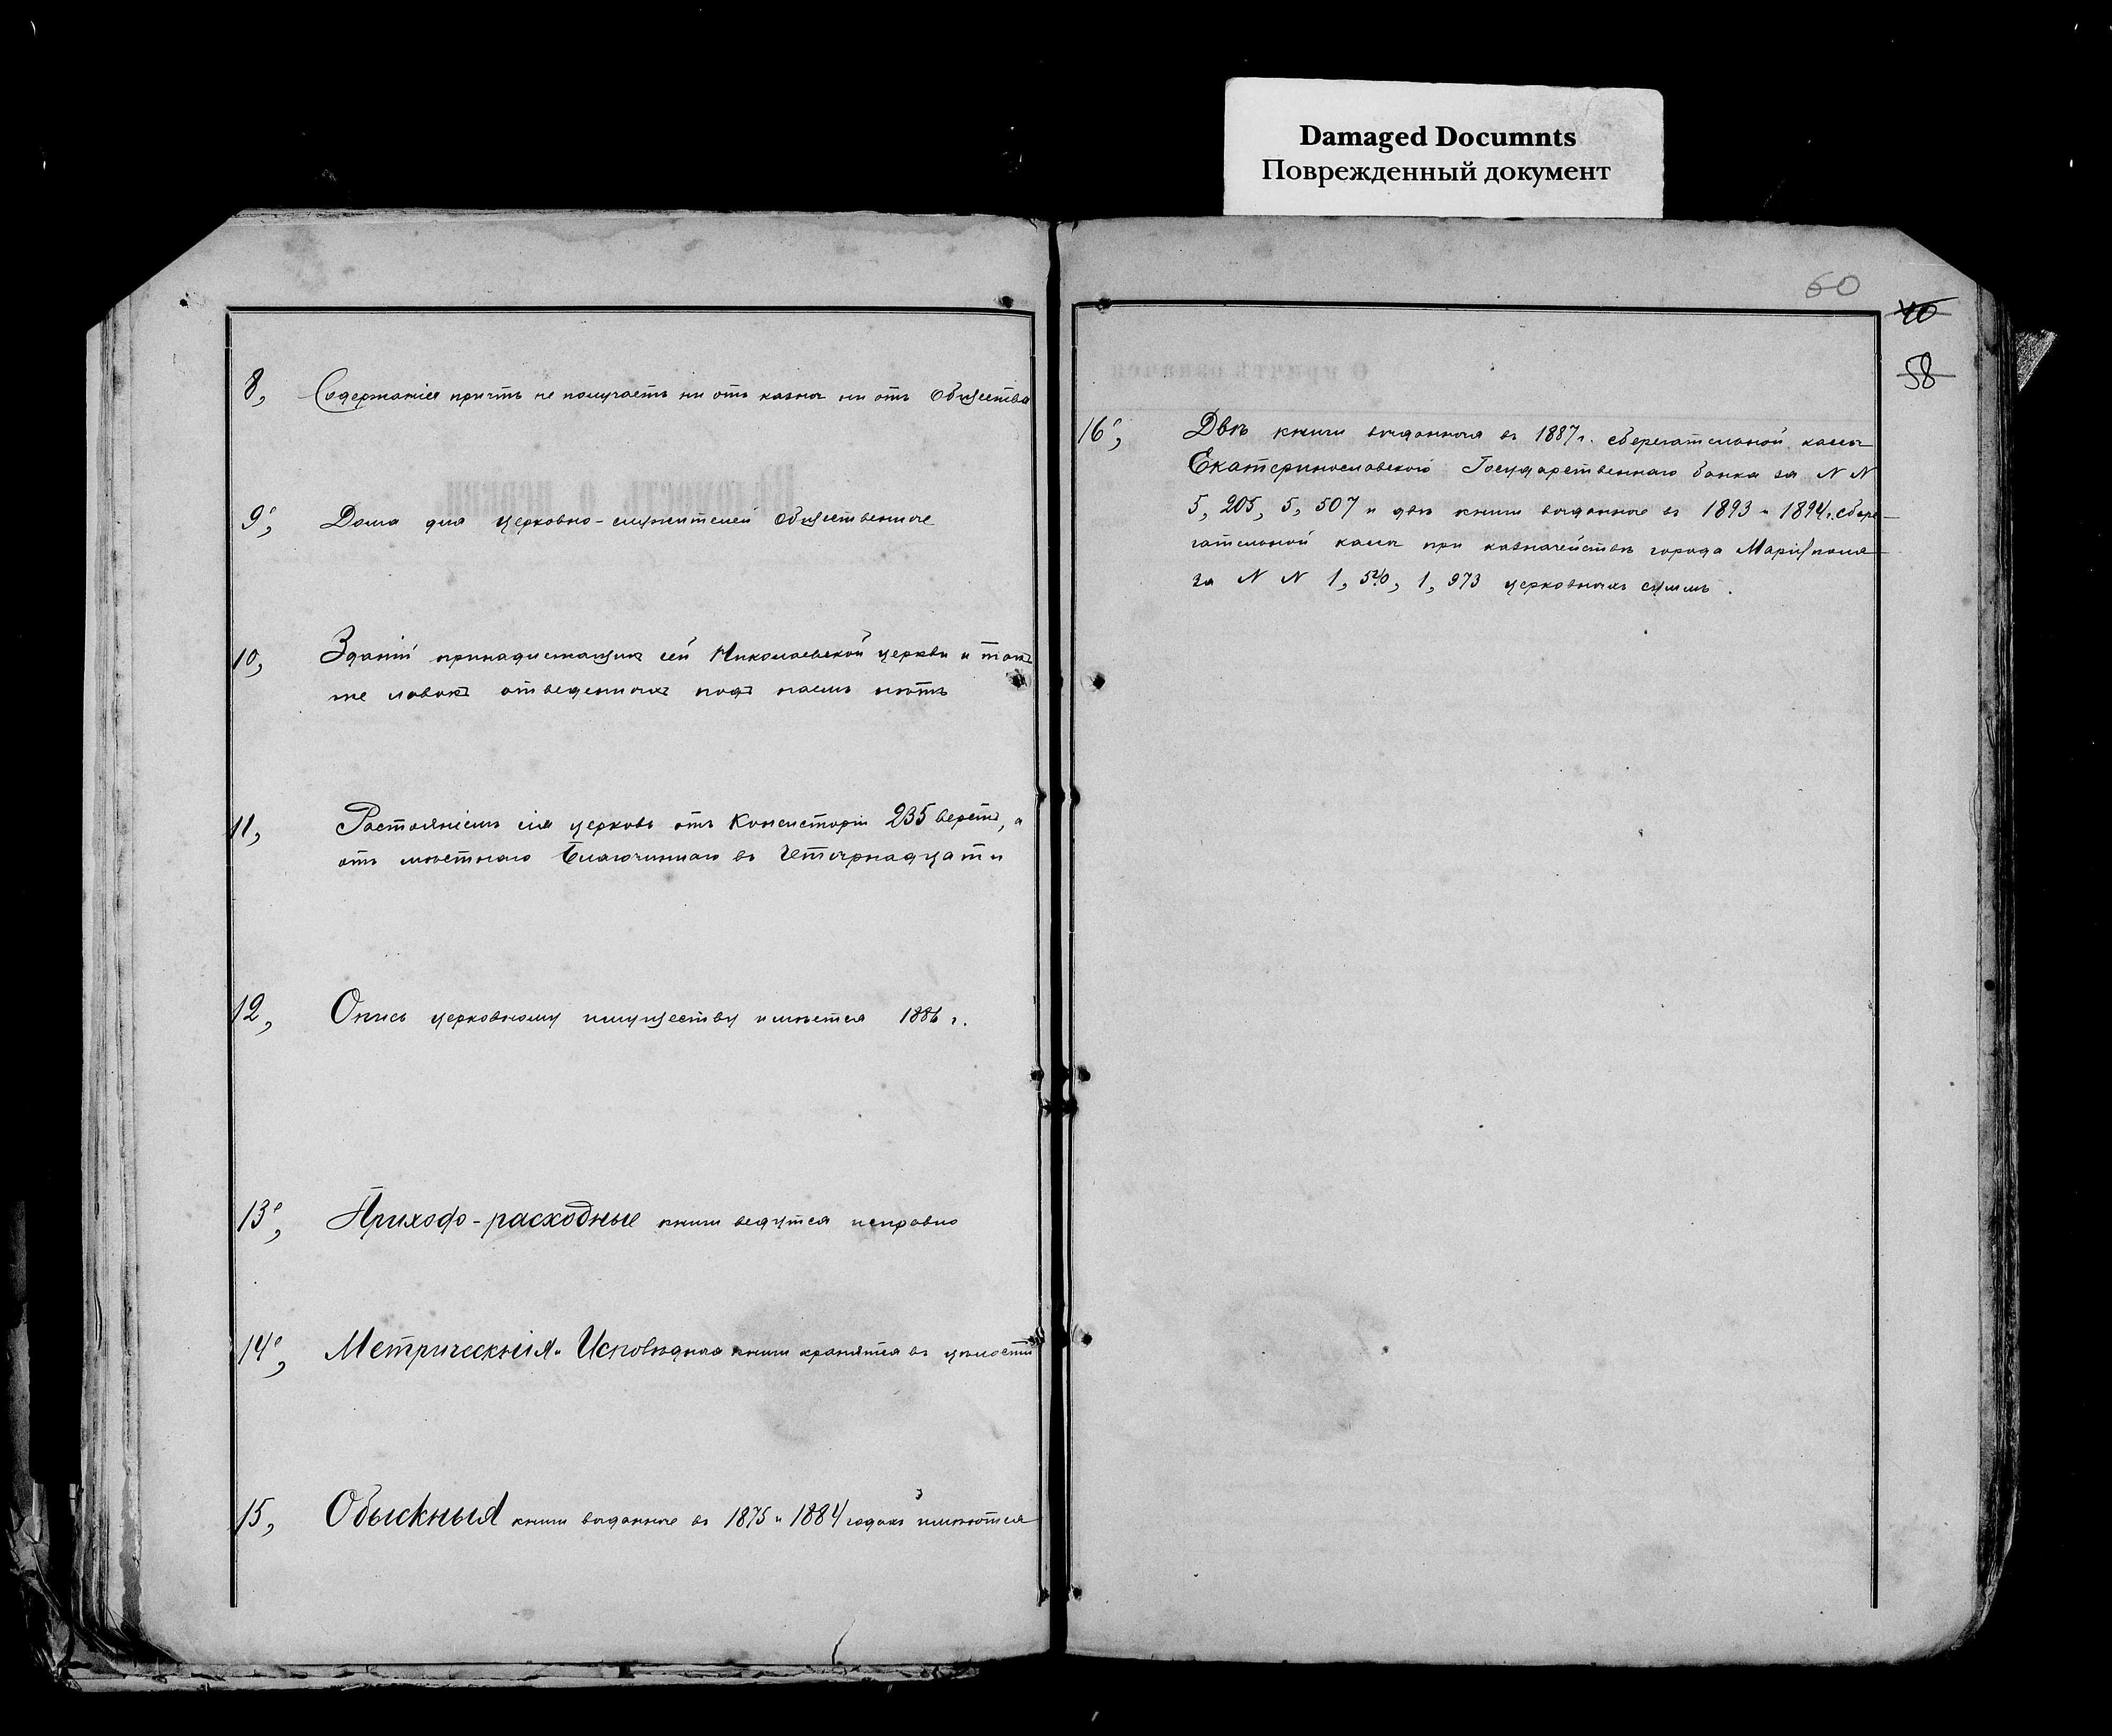 Damaged Documnts
Поврежденный документ
8, Содержанія причтъ не получаетъ ни отъ казны ни отъ Общества
9, Дома для церковно-служителей Общественные
10, Зданій принадлежащихъ сей Николаевской церкви и такъ
же лавокъ отведенныхъ подъ наемъ нѣтъ
11, Растояніемъ сія церковь отъ Консисторіи 235 верстъ, а
отъ мѣстнаго Благочиннаго въ Четырнадцати
12, Опись церковному имуществу имѣется 1886 г.
13, Приходо-расходные книги ведутся исправно
14, Метрическія и Исповѣдныя книги хранятся въ цѣлости
15, Обыскныя книги выданные въ 1875 и 1884 годахъ имѣются
60
40
58
16, Двѣ книги выданныя въ 1887 г. сберегательной кассы
Екатеринославскаго Государственнаго банка за N N
5, 205, 5, 507 и двѣ книги выданные въ 1893 и 1894 г. сбере-
гательной кассы при казначействѣ города Маріуполя
за N N 1, 540, 1, 973 церковныхъ суммъ.
О причтѣ означен
Вѣдомость о церкви.